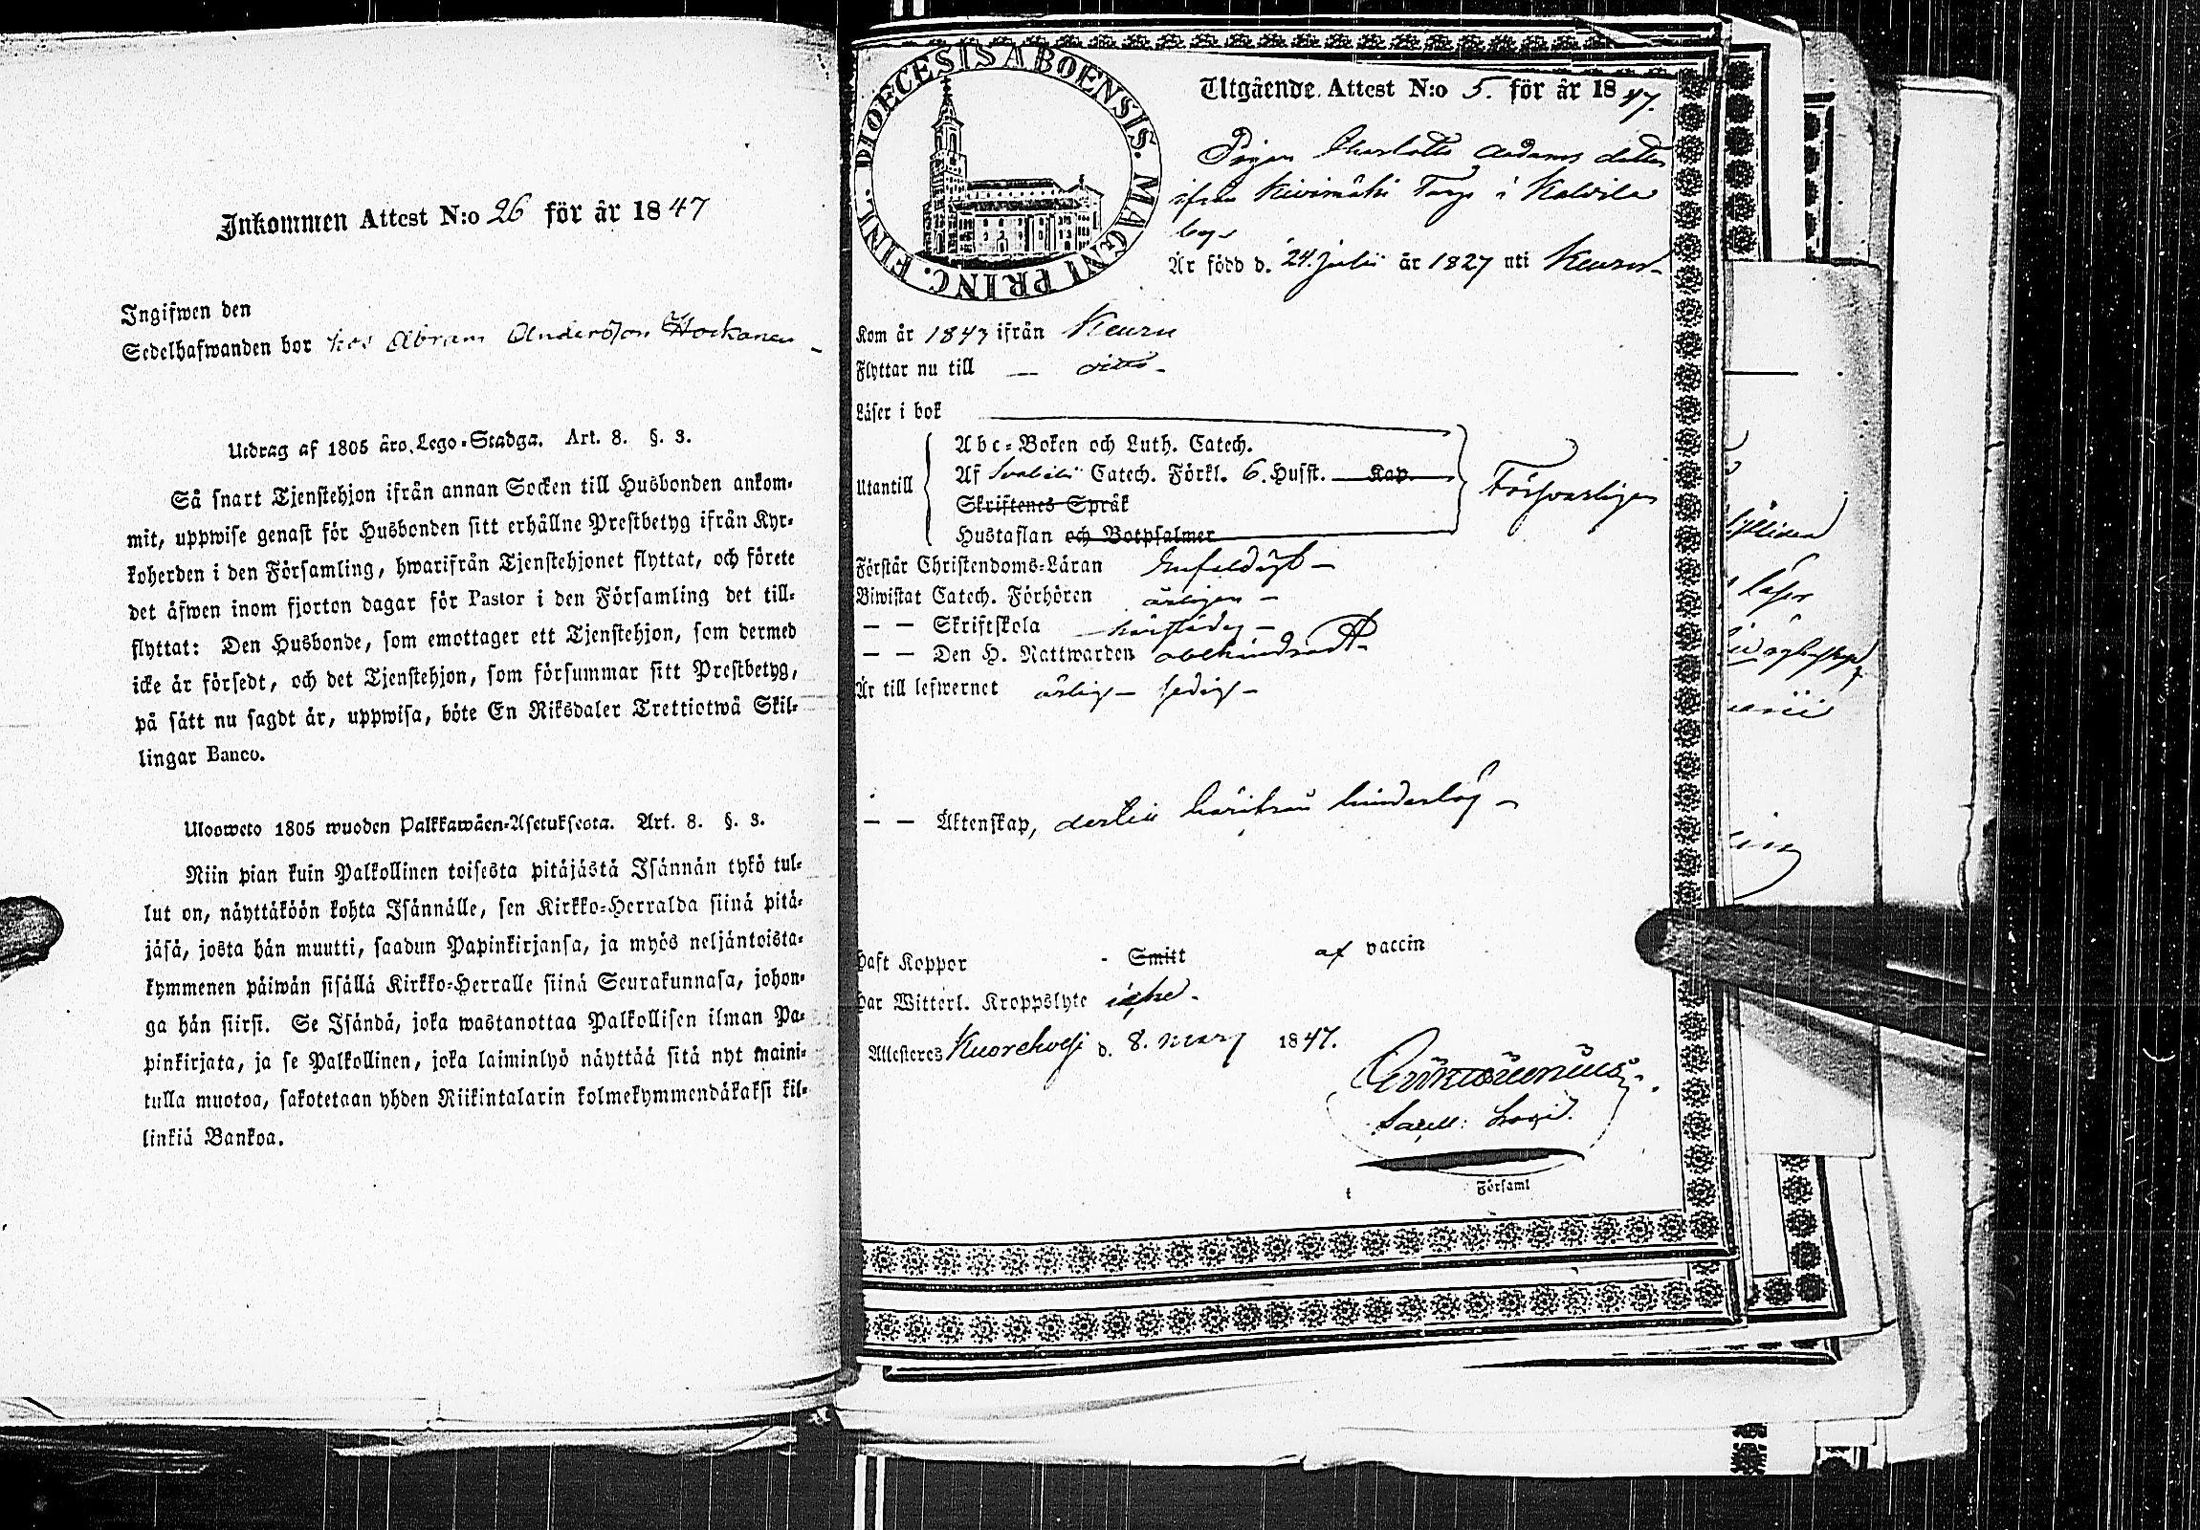 Inkommen Attest N:o 26 för år 1847
Ingifwen den
Sedelhafwanden bor hos Abram Andersson Hockanen
Utdrag af 1805 års Lego-Stadga. Art. 8. §. 3.
Så snart Tjenstehjon ifrån annan Socken till Husbonden ankom-
mit, uppwise genast för Husbonden sitt erhållne Prestbetyg ifrån Kyr-
koherden i den Församling, hwarifrån Tjenstehjonet flyttat, och förete
det äfwen inom fjorton dagar för Pastor i den Församling det till-
flyttat: Den Husbonde, som emottager ett Tjenstehjon, som dermed
icke är försedt, och det Tjenstehjon, som försummar sitt Prestbetyg,
på sätt nu sagdt är, uppwisa, böte En Riksdaler Trettiotwå Skil-
lingar Banco.
Ulosweto 1805 wuoden Palkkawäen-Asetuksesta. Art. 8. §. 3.
Niin pian kuin Palkollinen toisesta pitäjästä Isännän tykö tul-
lut on, näyttäköön kohta Isännälle, sen Kirkko-Herralda siinä pitä-
jäsä, josta hän muutti, saadun Papinkirjansa, ja myös neljäntoista-
kymmenen päiwän sisällä Kirkko-Herralle siinä Seurakunnasa, johon-
ga hän siirsi. Se Isändä, joka wastanottaa Palkollisen ilman Pa-
pinkirjata, ja se Palkollinen, joka laiminlyö näyttää sitä nyt maini-
tulla muotoa, sakotetaan yhden Riikintalarin kolmekymmendäkaksi kil-
linkiä Bankoa.
DIOECESIS ABOENSIS. MAGNI PRINC. FINL.
Utgående Attest N:o 5. för år 1847.
Pigan Charlotta Adams dotter
ifrån Kivimäki Torp i Kalvila
by
Är född d. 24. Julii år 1827 uti Keuru
Kom år 1843 ifrån Keuru
Flyttar nu till — dito
Läser i bok
Abc-Boken och Luth. Catech.
Utantill Af Svebelii Catech. Förkl. 6. Husst. Kap. Försvarligen
Skriftenes Språk
Hustaflan och Botpsalmer
Förstår Christendoms-Läran Enfaldigt
Biwistat Catech. Förhören årligen
— — Skriftskola härstädes
— — Den H. Nattwarden obehindradt
Är till lefwernet ärlig sedig
— — Äktenskap, dertill härifrån hinderlös
Haft Koppor Smitt af vaccin
Har Witterl. Kroppslyte icke
Attesteras Kuorehvesi d. 8. Mars 1847.
Församl